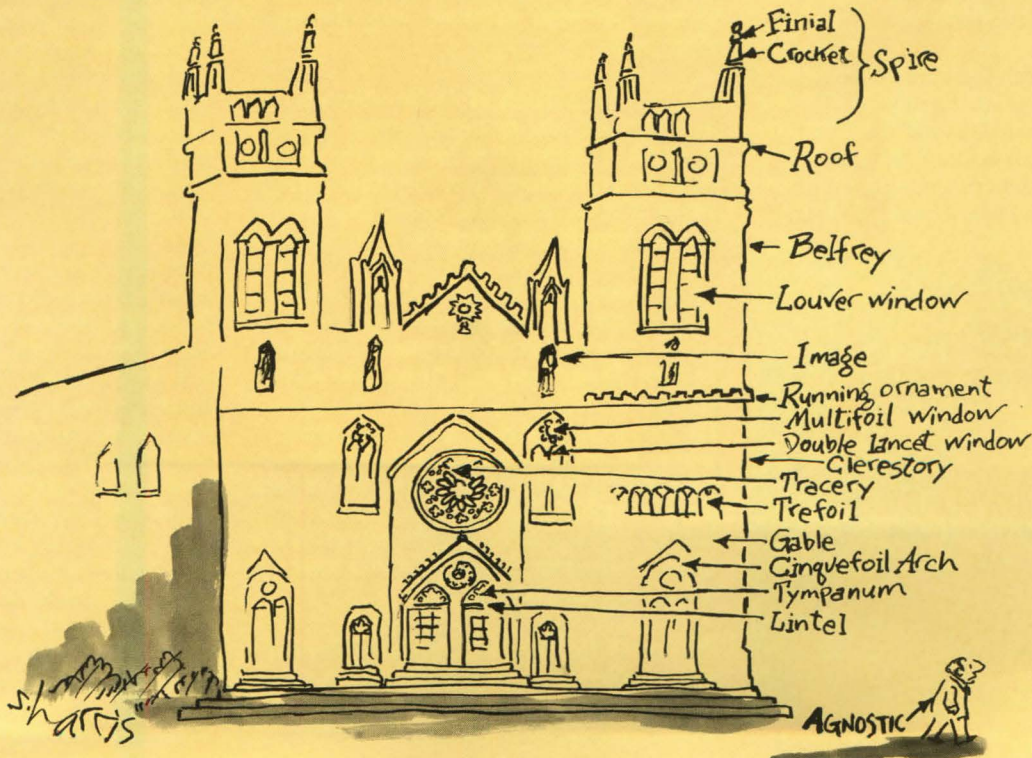 Finial
Crocket
Spire
Roof
Belfrey
Louver window
Image
Running ornament
Multifoil window
Double lancet window
Clerestory
Tracery
Trefoil
Gable
Cinquefoil Arch
Tympanum
Lintel
AGNOSTIC
S. harris